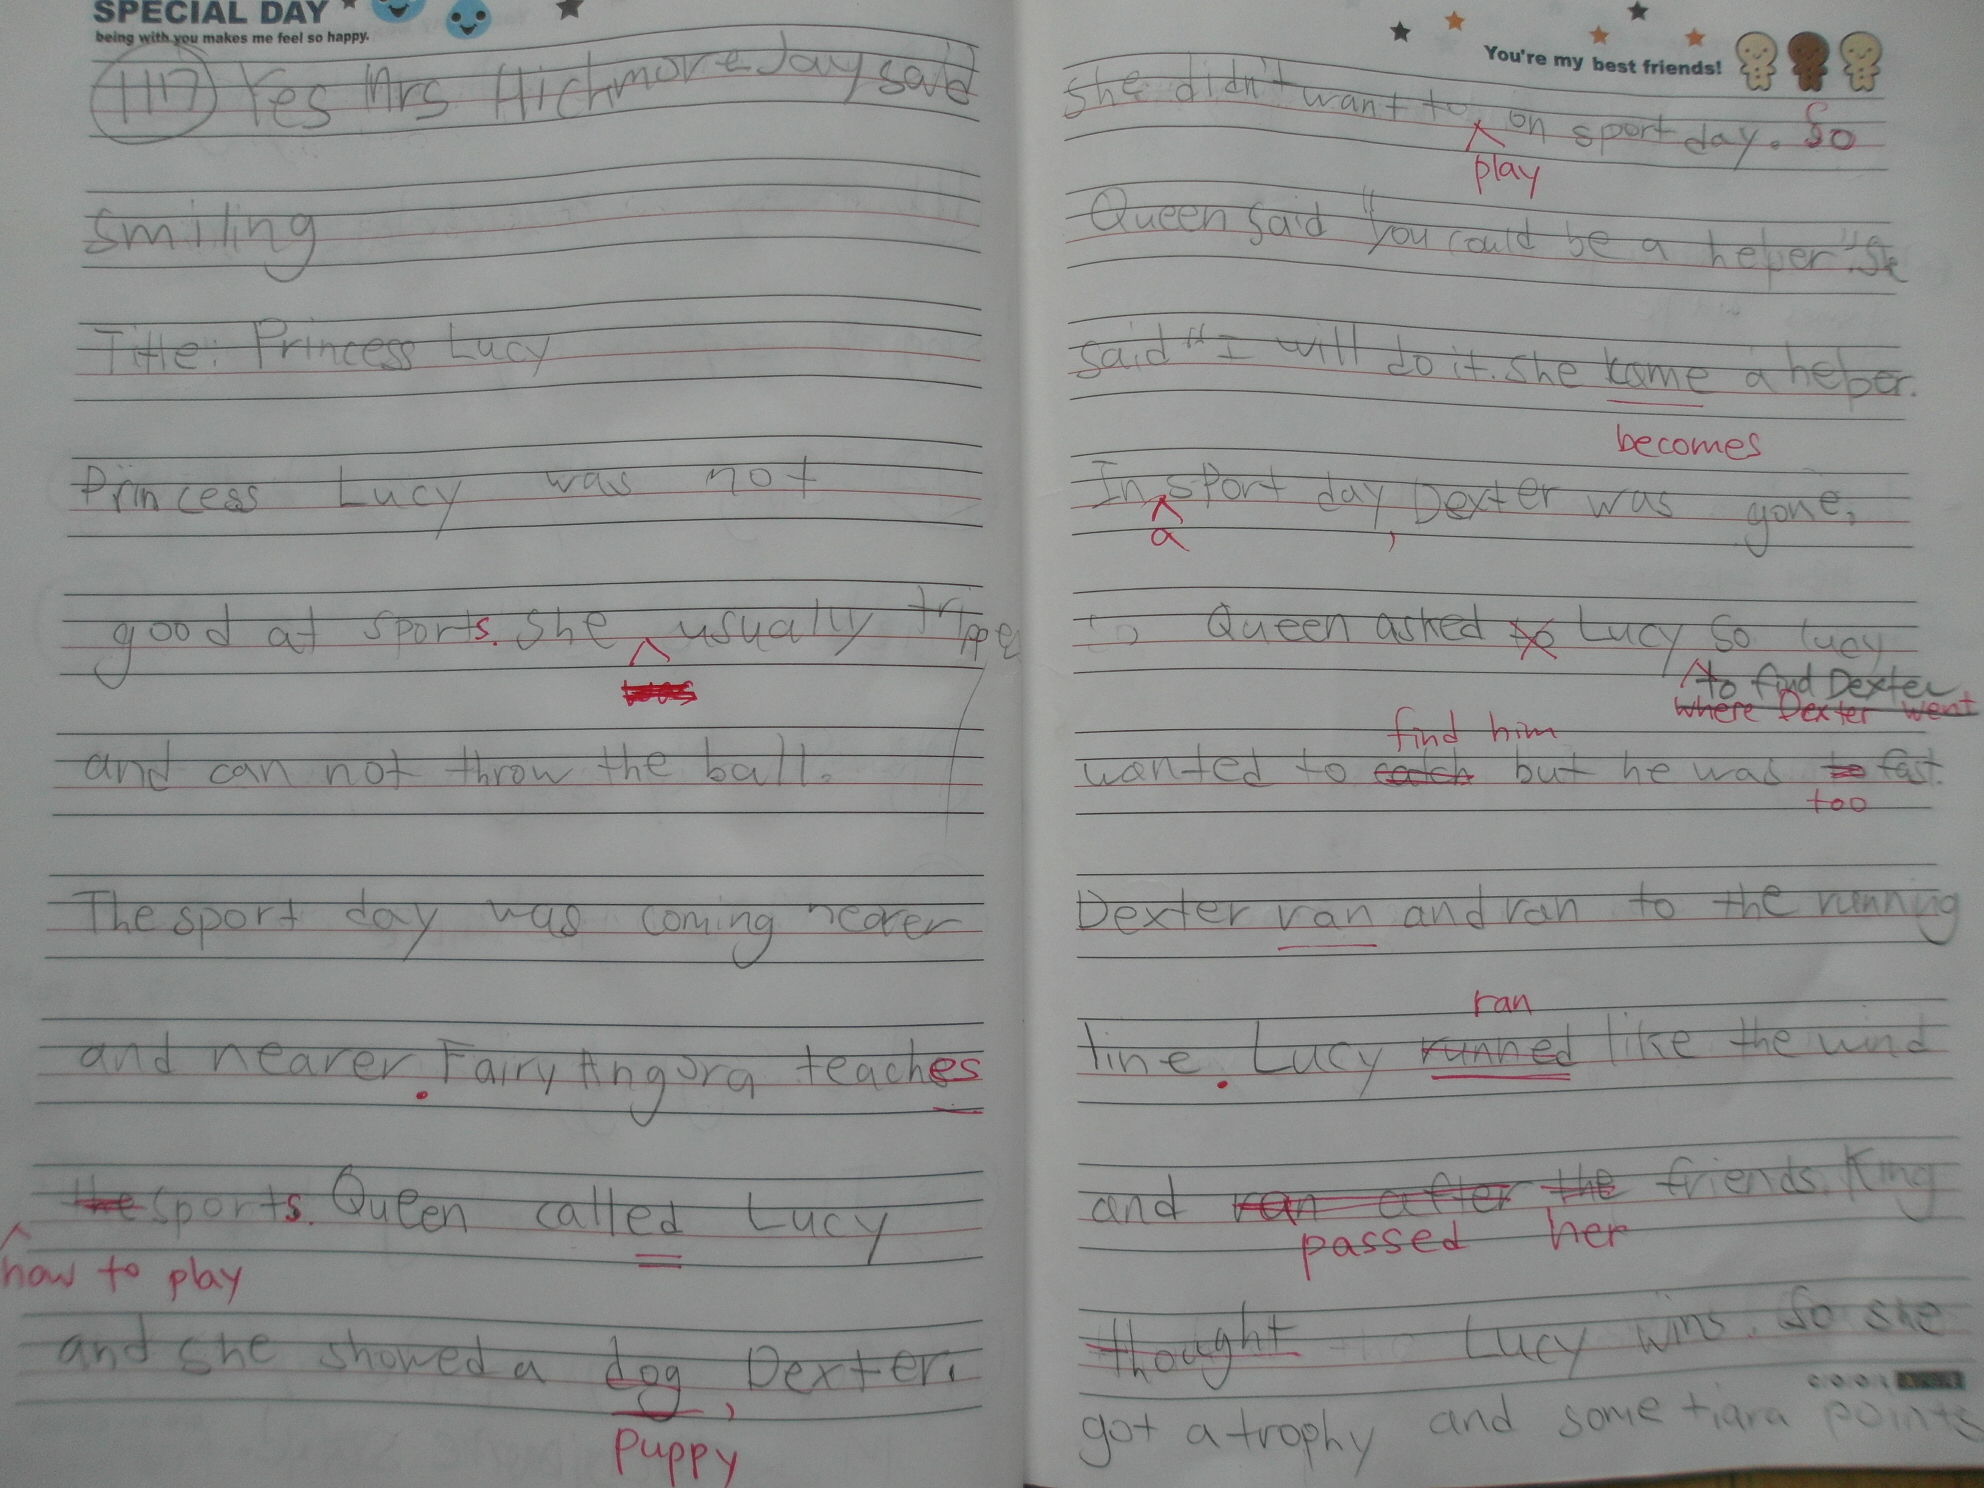 SPECIAL DAY
being with you makes me feel so happy.
1117 Yes Mrs Hichmore Jay said
smiling
Title: Princess Lucy
Princess Lucy was not
good at sports. She usually trippe
and can not throw the ball.
The sport day was coming nearer
and nearer. Fairy Angora teaches
the sports. Queen called Lucy
how to play
and she showed a dog, Dexter.
puppy
You're my best friends!
She didn't want to on sport day. So
play
Queen said "you could be a helper". She
said "I will do it. she kome a helper.
becomes
In sport day, Dexter was gone.
a
Queen asked to Lucy So lucy
to find Dexter
where Dexter went
find him
wanted to catch but he was to fast.
too
Dexter ran and ran to the running
ran
line. Lucy runned like the wind
and ran after the friends. King
passed her
thought Lucy wins. So she
got a trophy and some tiara points